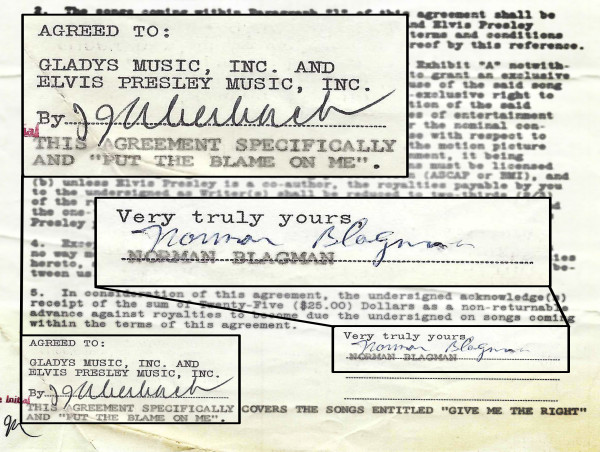 2. The songs coming within Paragraph "1" of this agreement shall be
and Elvis Presley
terms and conditions
reof by this reference.
AGREED TO:
GLADYS MUSIC, INC. AND
ELVIS PRESLEY MUSIC, INC.
By J J Aberbach
THIS AGREEMENT SPECIFICALLY
AND "PUT THE BLAME ON ME".
Exhibit "A" notwith-
to grant an exclusive
use of the said song
-exclusive right to
tion of the said
es of entertainment
r the nominal con-
with respect to
the motion picture
ment, it being
must be licensed
(ASCAP or BMI), and
(b) unless Elvis Presley is a co-author, the royalties payable by you
to the undersigned as Writer(s) shall be reduced to two-thirds (2/3)
of the
the one-
Presley
Very truly yours
Norman Blagman
NORMAN BLAGMAN
4. Exce
no way
hereto,
tween us
ties
be-
5. In consideration of this agreement, the undersigned acknowledge(s)
receipt of the sum of Twenty-Five ($25.00) Dollars as a non-returnable
advance against royalties to become due the undersigned on songs coming
within the terms of this agreement.
Very truly yours
Norman Blagman
NORMAN BLAGMAN
AGREED TO:
GLADYS MUSIC, INC. AND
ELVIS PRESLEY MUSIC, INC.
By J J Aberbach
initial
THIS AGREEMENT SPECIFICALLY COVERS THE SONGS ENTITLED "GIVE ME THE RIGHT"
AND "PUT THE BLAME ON ME".